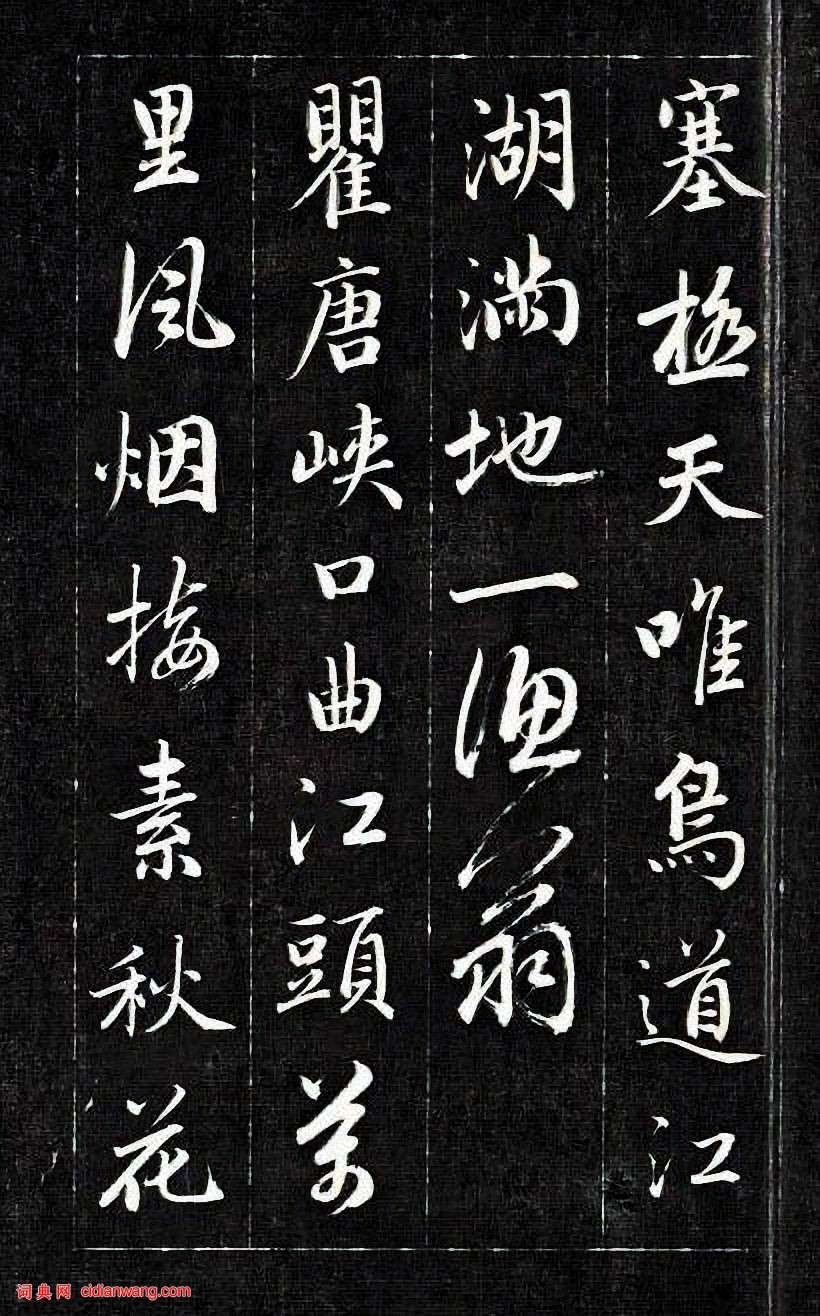 塞极天唯鳥道江
湖满地一漁翁
瞿唐峡口曲江頭万
里风烟接素秋花
词典网 cidianwang.com